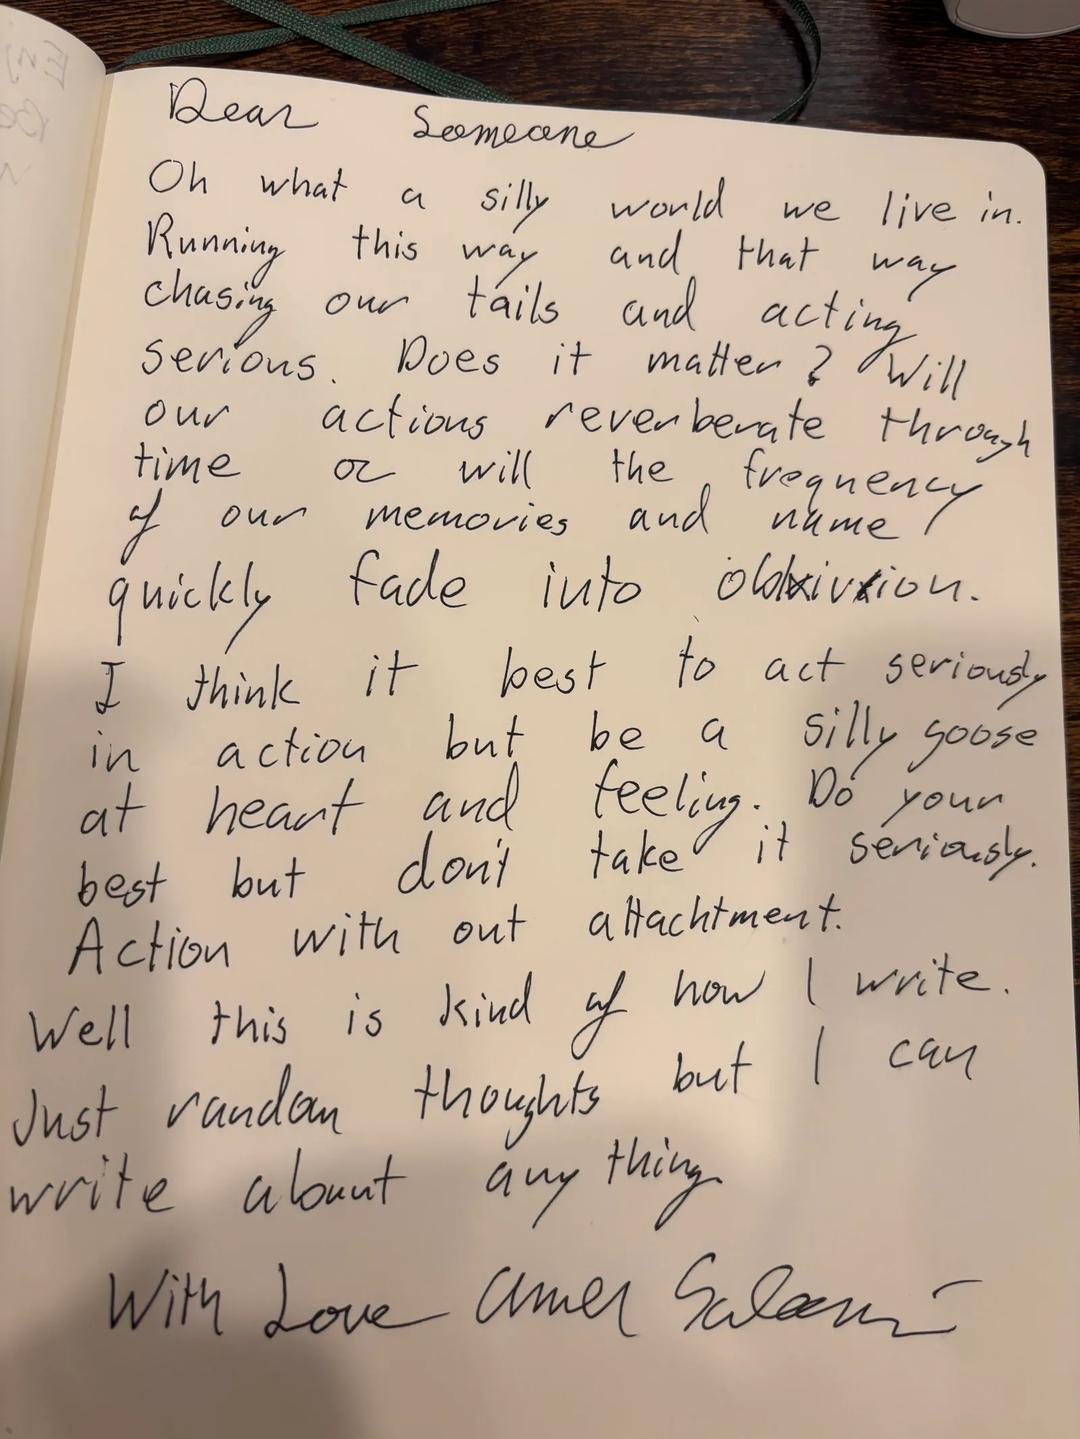 Dear Someone
Oh what a silly world we live in.
Running this way and that way
chasing our tails and acting
serious. Does it matter? Will
our actions reverberate through
time or will the frequency
of our memories and name
quickly fade into oblivion.
I think it best to act seriously
in action but be a silly goose
at heart and feeling. Do your
best but don't take it seriously.
Action with out attachtment.
Well this is kind of how I write.
Just random thoughts but I can
write abount any thing.
With Love Amer